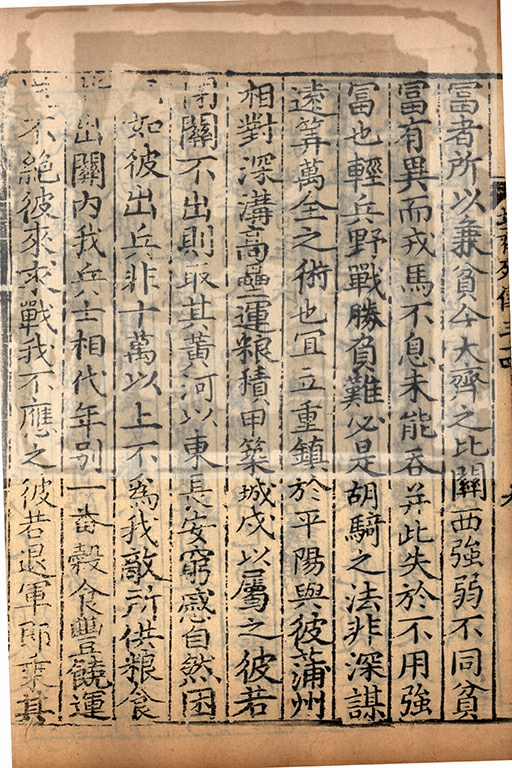 北齊列傳三十四
冨者所以兼貧今大齊之比關西強弱不同貧
冨有異而戎馬不息未能吞并此失於不用強
冨也輕兵野戰勝負難必是胡騎之法非深謀
遠筭萬全之術也冝立重鎮於平陽與彼蒲州
相對深溝高壘運粮積甲築城戍以屬之彼若
閉關不出則取其黃河以東長安窮慼自然困
如彼出兵非十萬以上不為我敵所供粮食
出關內我兵士相代年別一番穀食豐饒運
不絕彼來求戰我不應之彼若退軍即乗其